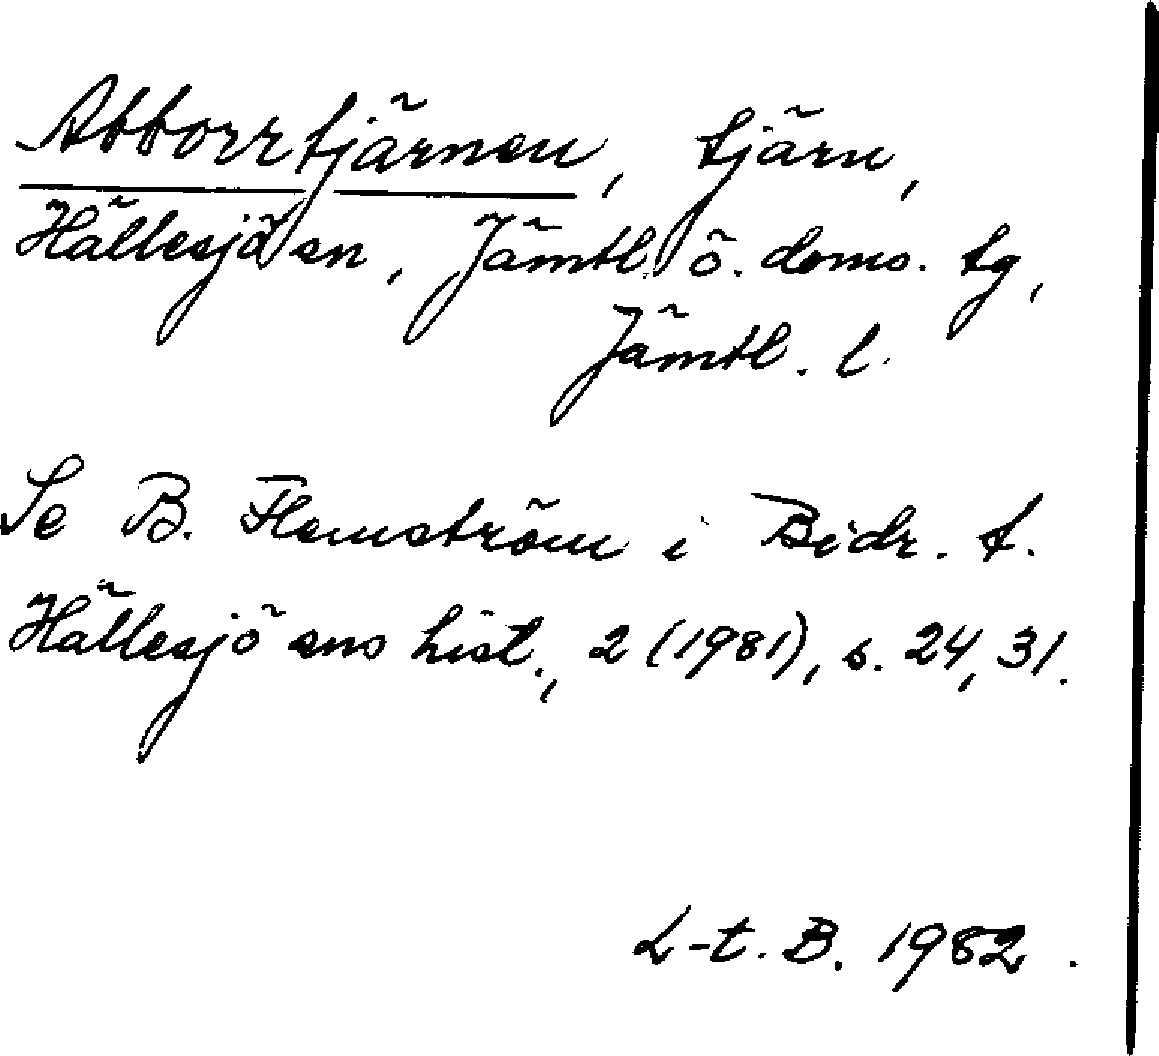 Abborrtjärnen, tjärn,
Hällesjö sn, Jämtl. ö. doms. tg,
Jämtl. l.
Se B. Flemström i Bidr. t.
Hällesjö sns hist., 2 (1981), s. 24, 31.
L-t. B. 1982.